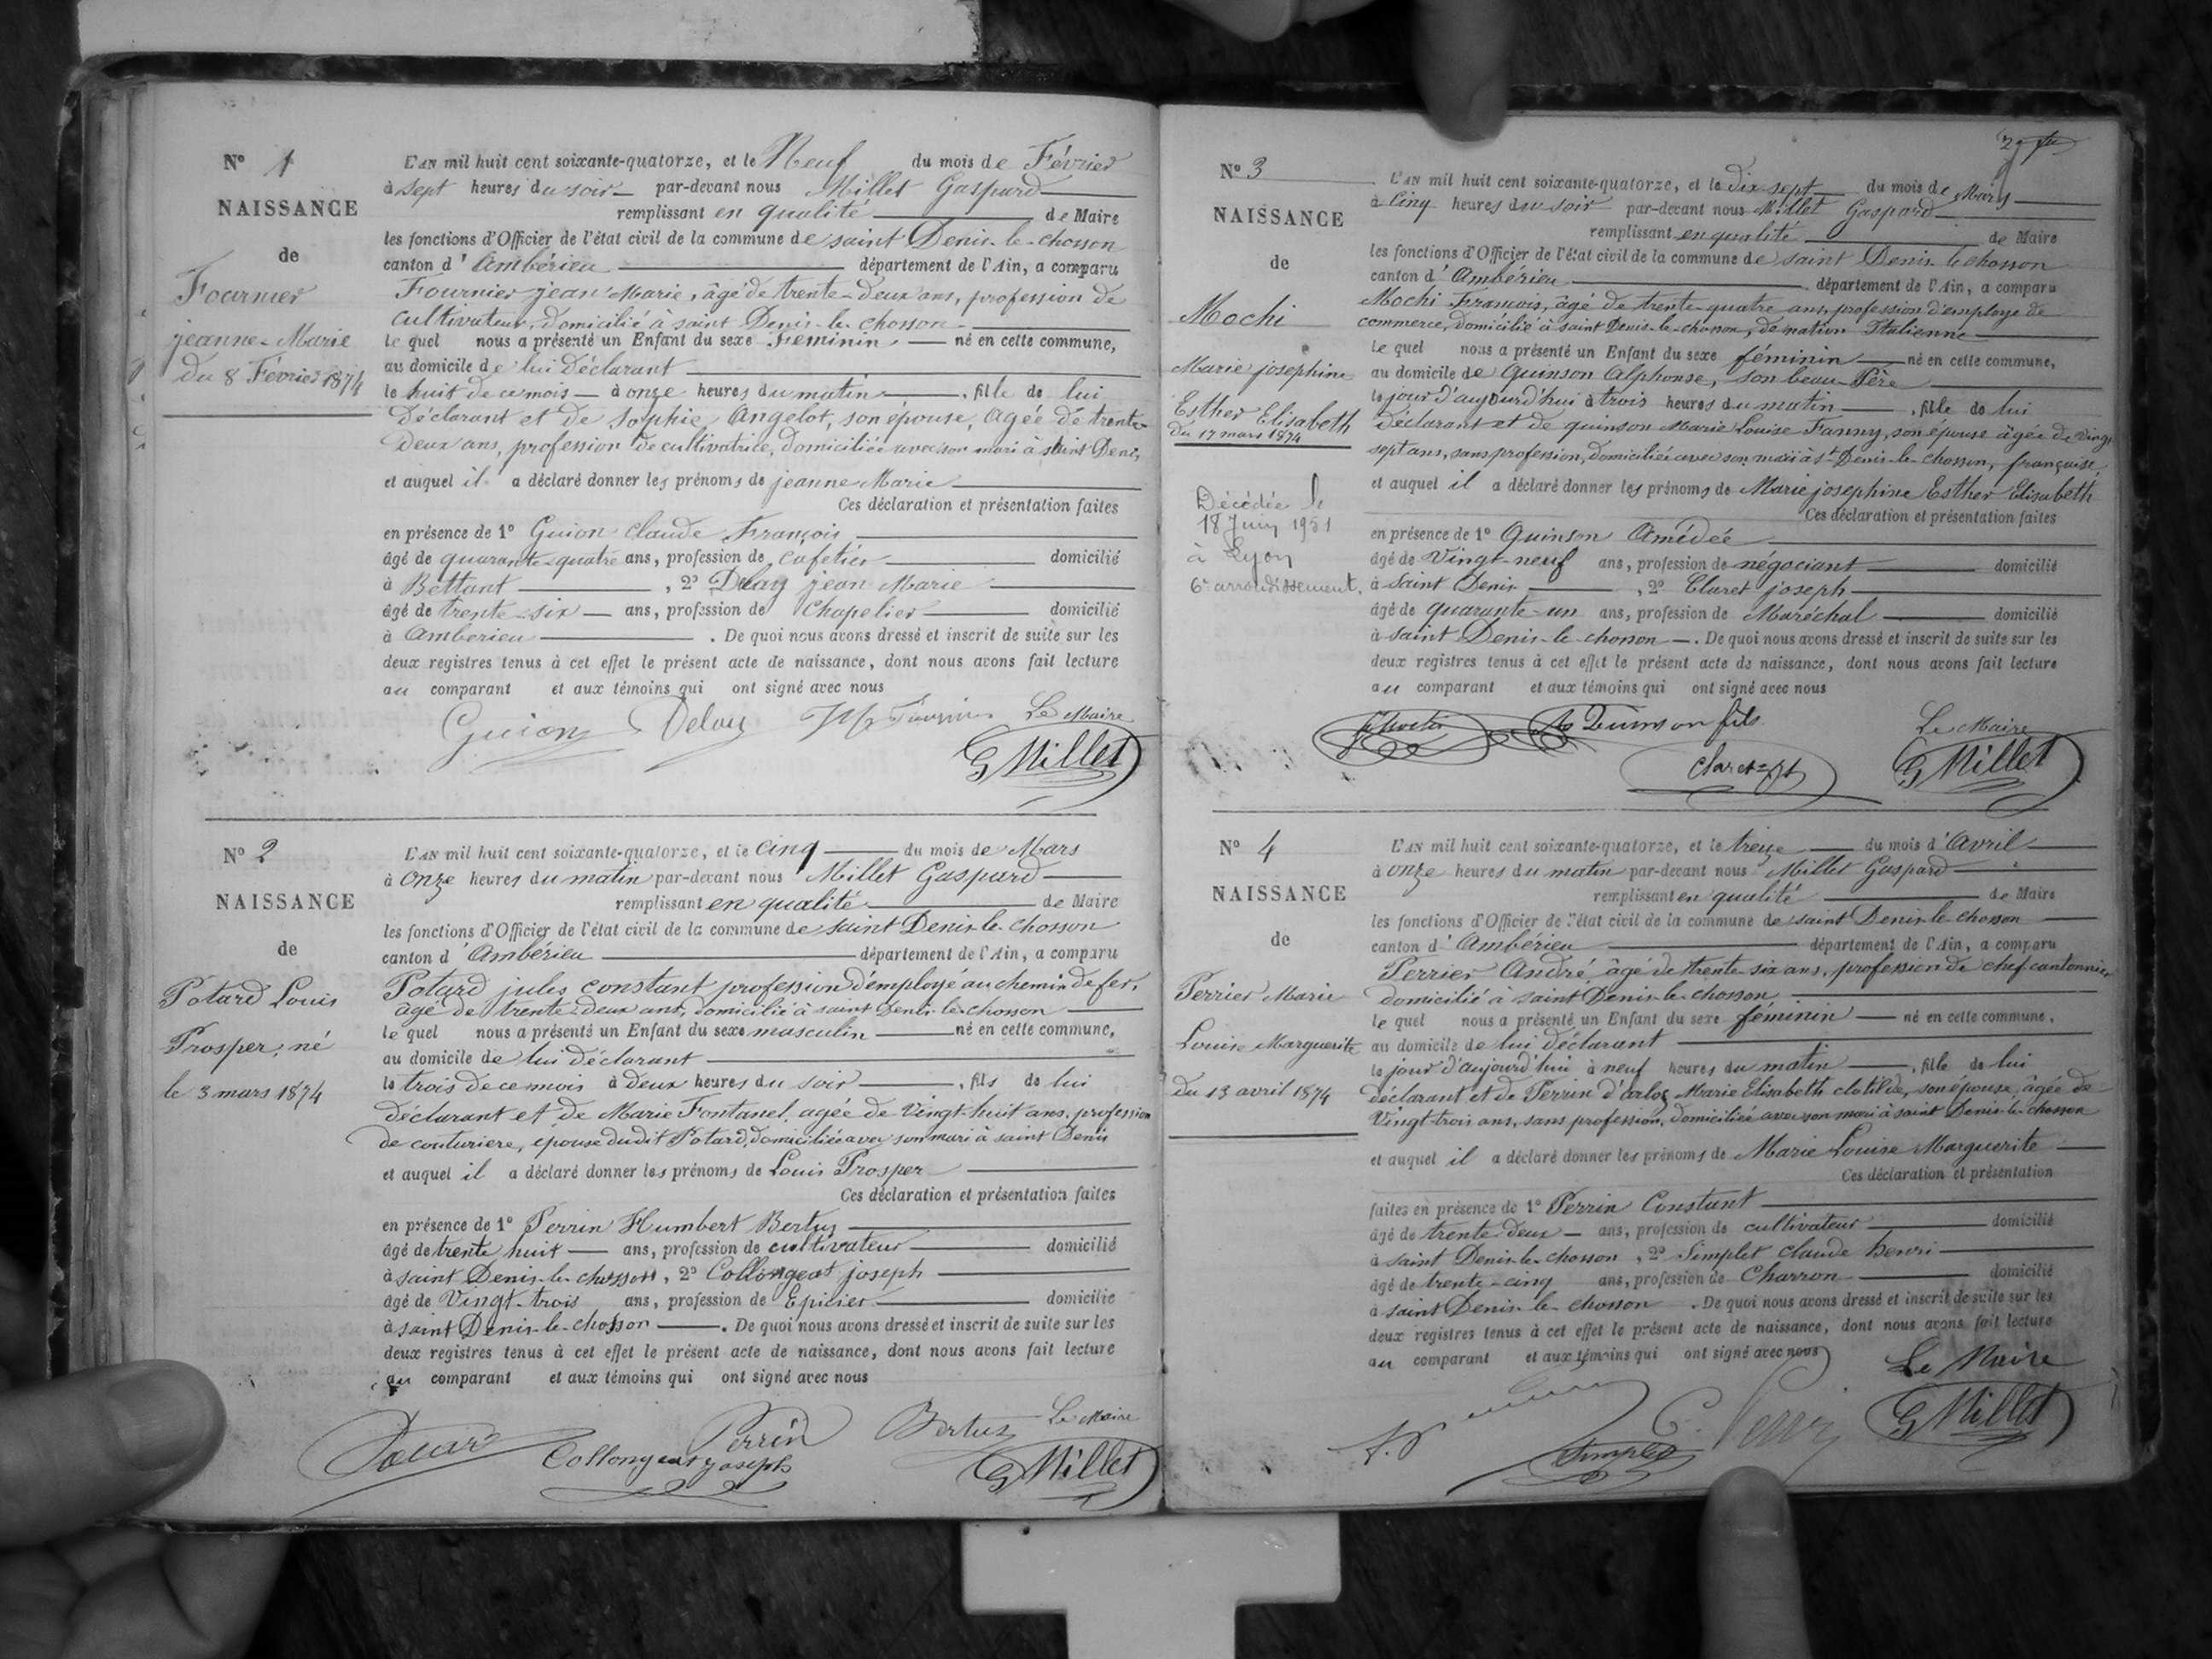 N° 1
NAISSANCE
de
Fournier
jeanne-Marie
du 8 Février 1874
L'AN mil huit cent soixante-quatorze, et le Neuf du mois de Février
à sept heures du soir par-devant nous Millet Gaspard
remplissant en qualité de Maire
les fonctions d'Officier de l'état civil de la commune de saint Denis-le-chosson
canton d'Ambérieu département de l'Ain, a comparu
Fournier jean Marie, âgé de trente-deux ans, profession de
cultivateur, domicilié à saint Denis-le-chosson
le quel nous a présenté un Enfant du sexe Féminin né en cette commune,
au domicile de lui déclarant
le huit de ce mois à onze heures du matin, fille de lui
Déclarant et de Sophie Angelot, son épouse, Agée de trente-
Deux ans, profession de cultivatrice, domiciliée avec son mari à saint Denis,
et auquel il a déclaré donner les prénoms de jeanne Marie
Ces déclaration et présentation faites
en présence de 1° Guion Claude François
âgé de quarante-quatre ans, profession de cafetier domicilié
à Bettant, 2° Delay jean Marie
âgé de trente-six ans, profession de Chapelier domicilié
à Amberieu. De quoi nous avons dressé et inscrit de suite sur les
deux registres tenus à cet effet le présent acte de naissance, dont nous avons fait lecture
au comparant et aux témoins qui ont signé avec nous
Guion Delay Le Maire
G Millet
N° 2
NAISSANCE
de
Potard Louis
Prosper, né
le 3 mars 1874
L'AN mil huit cent soixante-quatorze, et le cinq du mois de Mars
à onze heures du matin par-devant nous Millet Gaspard
remplissant en qualité de Maire
les fonctions d'Officier de l'état civil de la commune de saint Denis-le-chosson
canton d'Ambérieu département de l'Ain, a comparu
Potard jules constant profession d'employé au chemin de fer,
âgé de trente-deux ans, domicilié à saint Denis-le-chosson
le quel nous a présenté un Enfant du sexe masculin né en cette commune,
au domicile de lui déclarant
le trois de ce mois à deux heures du soir, fils de lui
déclarant et de Marie Fontanel, agée de Vingt-huit ans, profession
de couturiere, épouse dudit Potard, domiciliée avec son mari à saint Denis
et auquel il a déclaré donner les prénoms de Louis Prosper
Ces déclaration et présentation faites
en présence de 1° Perrin Humbert Bertus
âgé de trente huit ans, profession de cultivateur domicilié
à saint Denis-le-chosson, 2° Collongeat joseph
âgé de Vingt-trois ans, profession de Epicier domicilié
à saint Denis-le-chosson. De quoi nous avons dressé et inscrit de suite sur les
deux registres tenus à cet effet le présent acte de naissance, dont nous avons fait lecture
au comparant et aux témoins qui ont signé avec nous
Perrin Bertus Le Maire
Collongeat joseph G Millet
N° 3
NAISSANCE
de
Mochi
Marie josephine
Esther Elisabeth
du 17 mars 1874
Décédée le
18 Juin 1951
à Lyon
6e arrondissement.
L'AN mil huit cent soixante-quatorze, et le dix-sept du mois de Mars
à cinq heures du soir par-devant nous Millet Gaspard
remplissant en qualité de Maire
les fonctions d'Officier de l'état civil de la commune de saint Denis-le chosson
canton d'Ambérieu département de l'Ain, a comparu
Mochi François, âgé de trente-quatre ans, profession d'employe de
commerce, domicilié à saint Denis-le-chosson, de nation Italienne
le quel nous a présenté un Enfant du sexe féminin né en cette commune,
au domicile de Quinson Alphonse, son beau-Père
le jour d'aujourd'hui à trois heures du matin, fille de lui
déclarant et de quinson Marie Louise Fanny, son épouse âgée de Vingt
sept ans, sans profession, domiciliée avec son mari à st Denis-le-chosson, française,
et auquel il a déclaré donner les prénoms de Marie josephine Esther Elisabeth
Ces déclaration et présentation faites
en présence de 1° Quinson Amédée
âgé de Vingt-neuf ans, profession de négociant domicilié
à Saint Denis, 2° Claret joseph
âgé de quarante-un ans, profession de Maréchal domicilié
à saint Denis-le-chosson. De quoi nous avons dressé et inscrit de suite sur les
deux registres tenus à cet effet le présent acte de naissance, dont nous avons fait lecture
au comparant et aux témoins qui ont signé avec nous
Quinson fils Le Maire
G Millet
N° 4
NAISSANCE
de
Perrier Marie
Louise Marguerite
du 13 avril 1874
L'AN mil huit cent soixante-quatorze, et le treize du mois d'Avril
à onze heures du matin par-devant nous Millet Gaspard
remplissant en qualité de Maire
les fonctions d'Officier de l'état civil de la commune de saint Denis-le-chosson
canton d'Ambérieu département de l'Ain, a comparu
Perrier André âgé de trente-six ans, profession de chef cantonnier
domicilié à saint Denis-le-chosson
le quel nous a présenté un Enfant du sexe féminin né en cette commune,
au domicile de lui déclarant
le jour d'aujourd'hui à neuf heures du matin, fille de lui
déclarant et de Perrin d'arlos Marie Elisabeth clotilde, son épouse, âgée de
Vingt-trois ans, sans profession, domiciliée avec son mari à saint Denis-le-chosson
et auquel il a déclaré donner les prénoms de Marie Louise Marguerite
Ces déclaration et présentation
faites en présence de 1° Perrin Constant
âgé de trente-deux ans, profession de cultivateur domicilié
à saint Denis-le-chosson, 2° Simplet claude henri
âgé de trente-cinq ans, profession de Charron domicilié
à saint Denis-le-chosson. De quoi nous avons dressé et inscrit de suite sur les
deux registres tenus à cet effet le présent acte de naissance, dont nous avons fait lecture
au comparant et aux témoins qui ont signé avec nous
Le Maire
Simplet C. Perrin G Millet